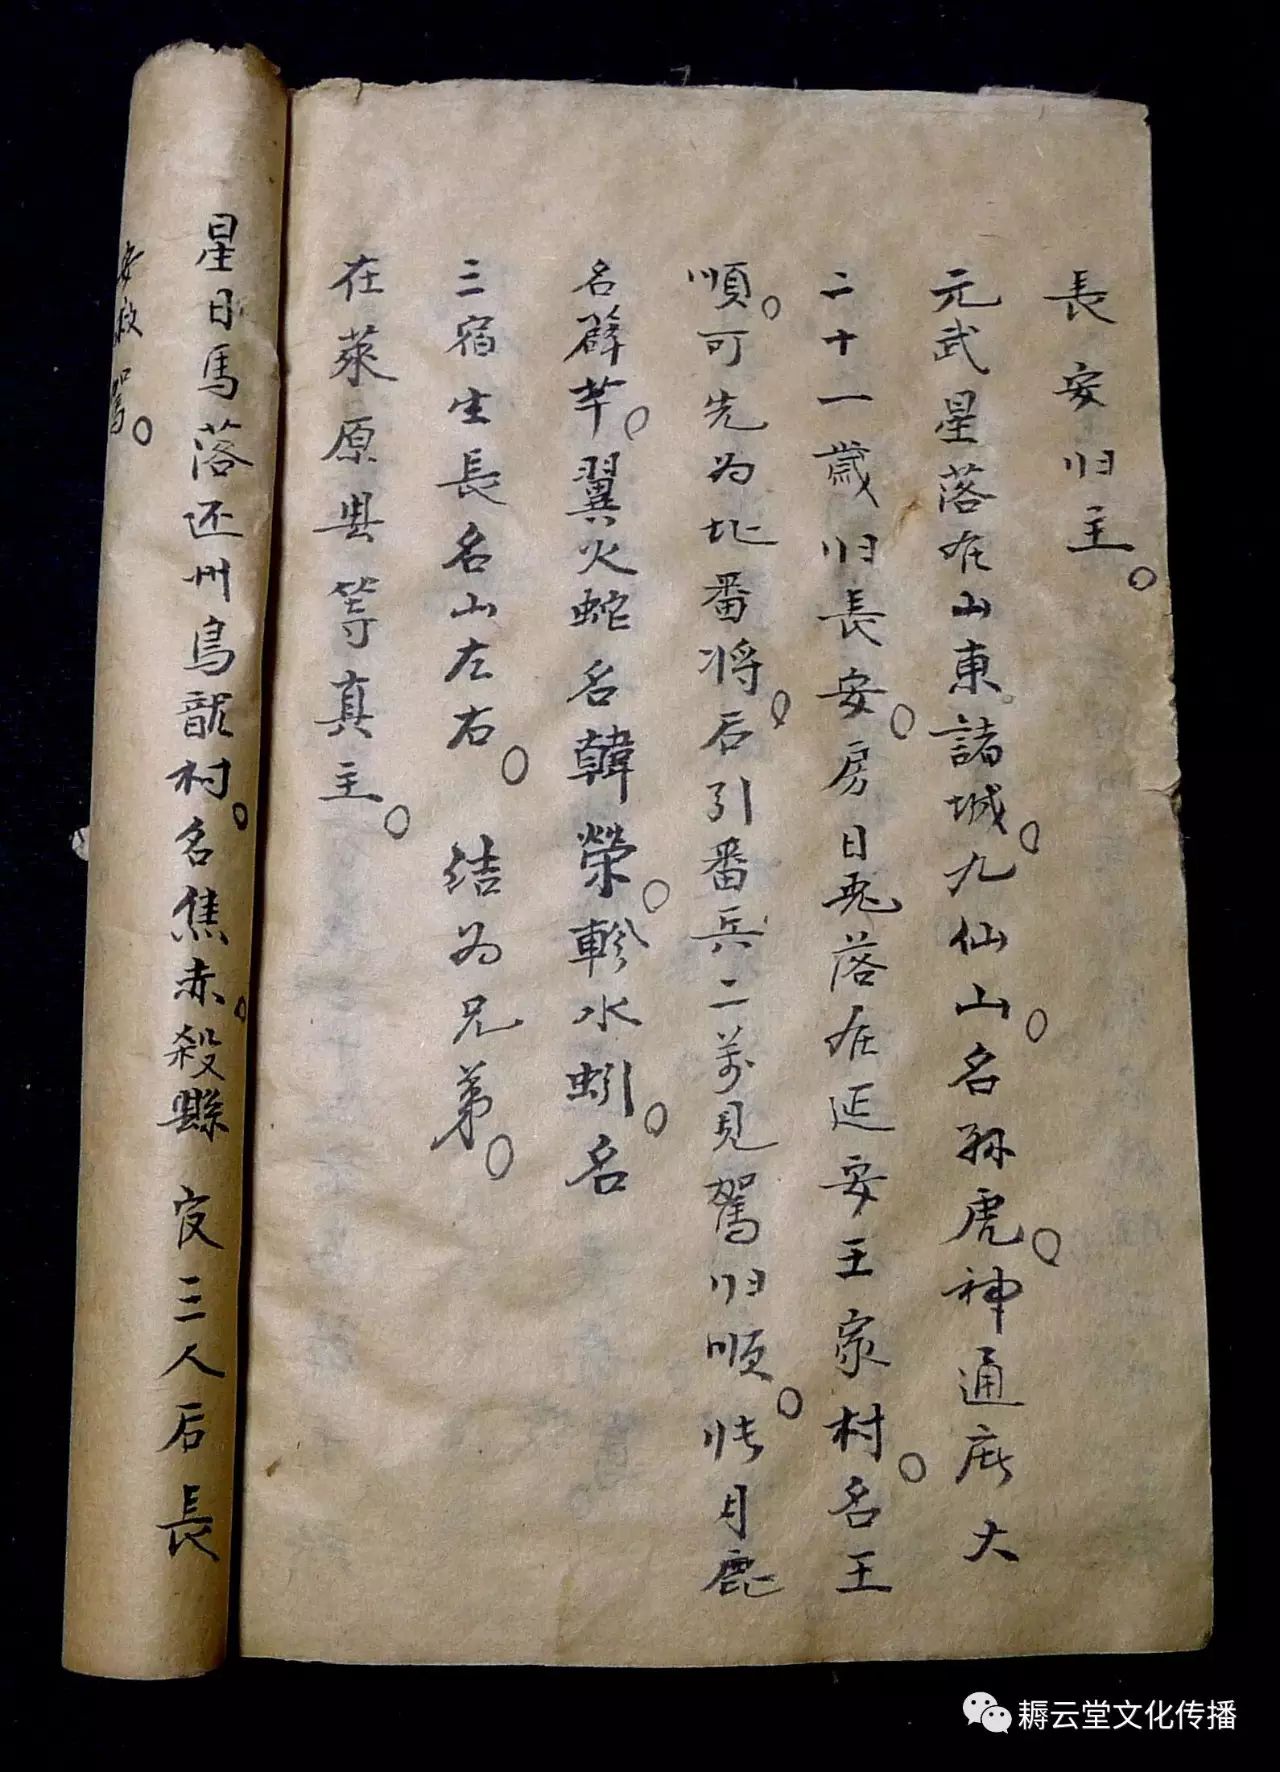 長安归主。
元武星落在山東諸城。九仙山。名孫虎。神通庇大
二十一歲归長安。房日兎落在延安王家村。名王
順。可先为北番将。后引番兵二万見駕归順。张月鹿
名薛芊。翼火蛇名韓榮。軫水蚓。名
三宿生長名山左右。 结为兄弟。
在萊原县等真主。
星日馬落还州鳥龍村。名焦赤。殺縣官三人后長
安救駕。
耨云堂文化传播